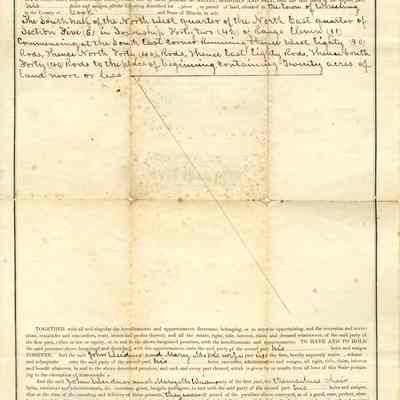 heirs and assigns, all the following described lot, piece, or parcel of land, situated in the Town of Wheeling
in the County of Cook and State of Illinois, to wit:
The South half of the North West quarter of the North East quarter of
Section Five (5) in Township Forty two (42) of Range Eleven (11)
Commencing at the South East Corner Running Thence West Eighty (80)
Rods, Thence North Forty (40) Rods, Thence East Eighty Rods, Thence South
Forty (40) Rods to the place of beginning containing Twenty acres of
Land more or less
TOGETHER with all and singular the hereditaments and appurtenances thereunto belonging, or in anywise appertaining, and the reversion and rever-
sions, remainder and remainders, rents, issues and profits thereof; and all the estate, right, title, interest, claim and demand whatsoever, of the said party of
the first part, either in law or equity, of, in and to the above bargained premises, with the hereditaments and appurtenances: TO HAVE AND TO HOLD
the said premises above bargained and described, with the appurtenances, unto the said party of the second part, his heirs and assigns
FOREVER. And the said John and Mary M his wife part of the first, hereby expressly waive, release
and relinquish unto the said party of the second part, his heirs, executors, administrators and assigns, all right, title, claim, interest
and benefit whatever, in and to the above described premises, and each and every part thereof, which is given by or results from all laws of this State pertain-
ing to the exemption of homesteads.
And the said John and Mary M party of the first part, for Themselves their
heirs, executors and administrators, do covenant, grant, bargain and agree, to and with the said party of the second part, his heirs and assigns,
that at the time of the ensealing and delivery of these presents, They were seized of the premises above conveyed, as of a good, sure, perfect, abso-